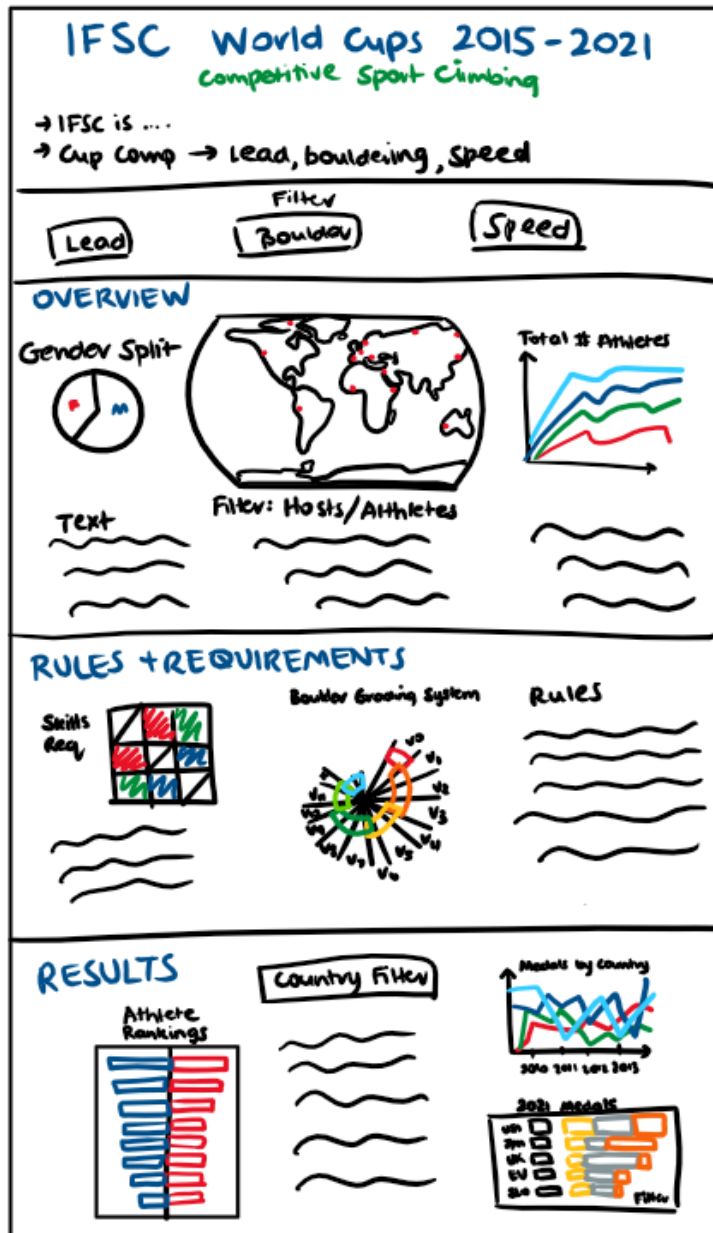 IFSC World Cups 2015-2021
Competitive Sport Climbing
→ IFSC is ....
→ Cup Comp → Lead, bouldering, speed
Filter
Lead
Boulder
Speed
OVERVIEW
Gender Split
F
M
Total # Athletes
Text
Filter: Hosts/Athletes
RULES + REQUIREMENTS
Skills
Req
Boulder Grading System
V0
V1
V2
V3
V4
V5
V6
V7
V8
Rules
RESULTS
Country Filter
Athlete
Rankings
Medals by Country
2010 2011 2012 2013
2021 Medals
USA
JPN
UK
EU
SLO
Filter